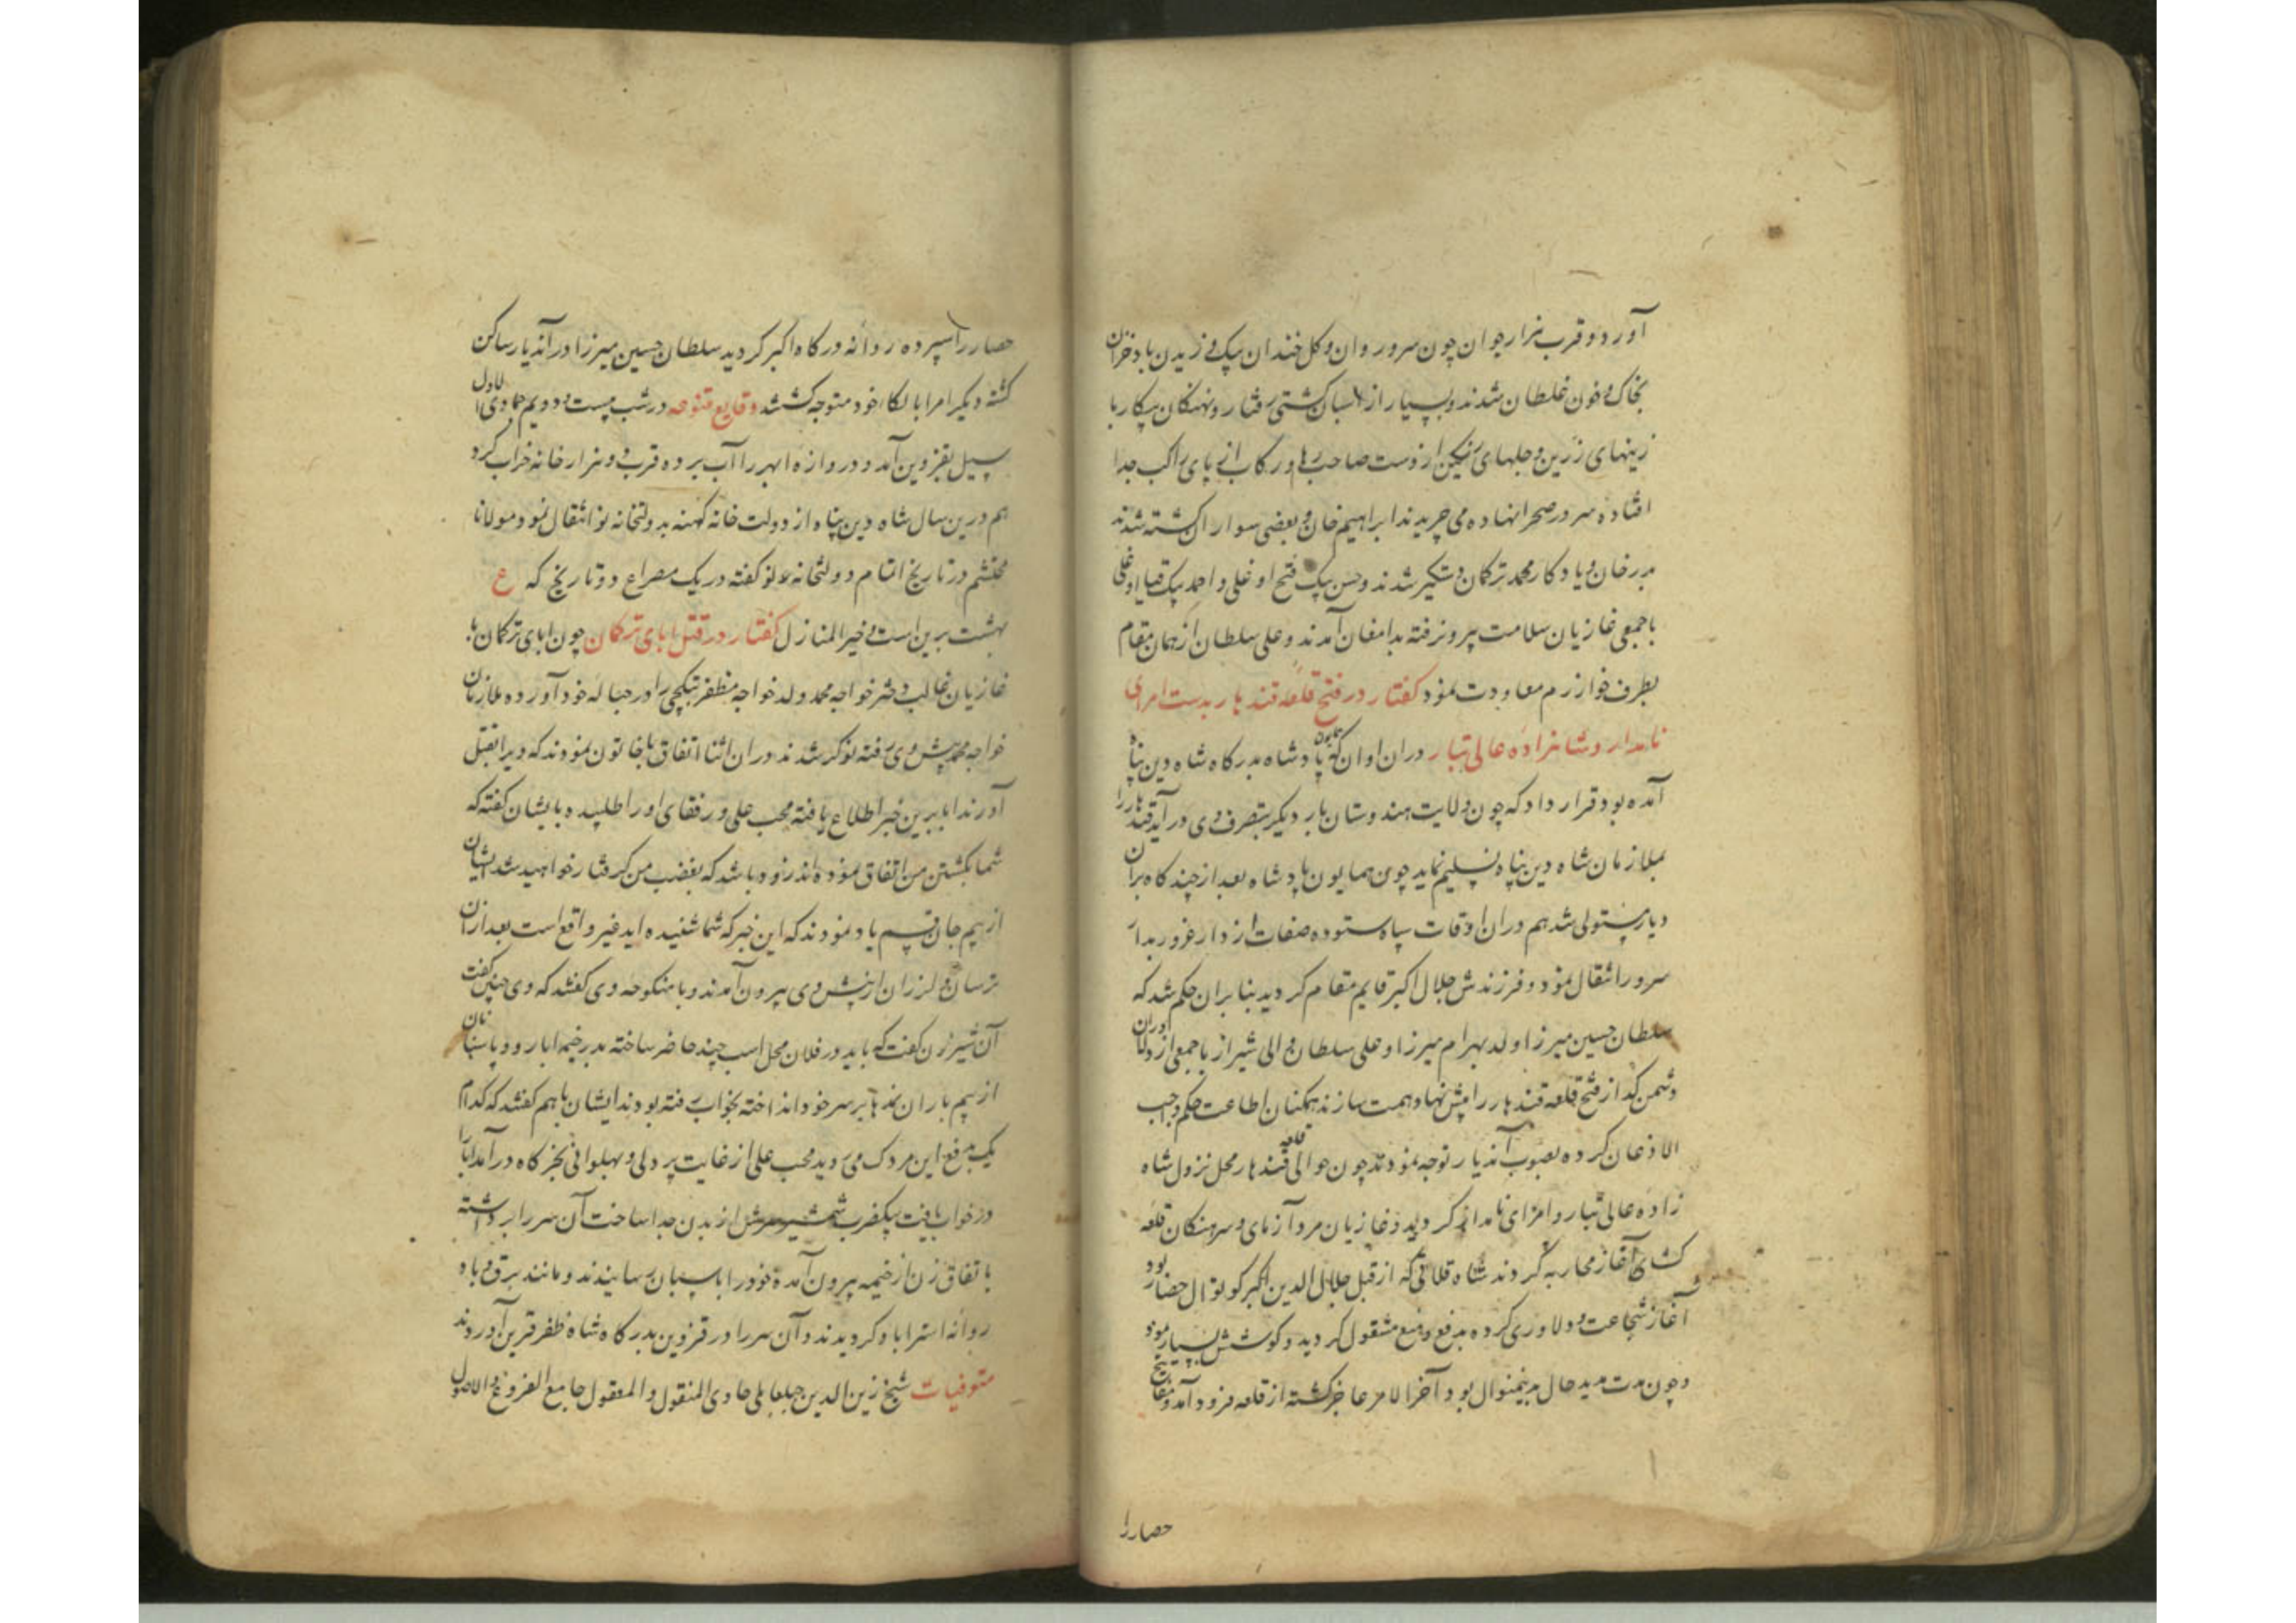 آورد و قرب هزار جوان چون سرو روان و کل خندان بیک وزیدن باد خزان
بخاک و خون غلطان شدند و بسیار از اسبان کشتی رفتار و نهنکان پیکار با
زینهای زرین و جلهای رنکین از دست صاحب رها و رکاب از پای راکب جدا
افتاده سر در صحرا نهاده می چریدند ابراهیم خان و بعضی سواران کشته شدند
بدرخان و یادکار محمد ترکمان دستکیر شدند و حسن بیک فتح اوغلی و احمد بیک قیا اوغلی
با جمعی غازیان سلامت بیرون رفته بدامغان آمدند و علی سلطان از همان مقام
بطرف خوارزم معاودت نمود کفتار در فتح قلعه قندهار بدست امرای
نامدار و شاهزاده عالی تبار دران اوان که همایون پادشاه بدرکاه شاه دین پناه
آمده بود قرار داد که چون ولایت هندوستان بار دیکر بتصرف وی در آید قندهار را
بملازمان شاه دین پناه تسلیم نماید چون همایون پادشاه بعد از چند کاه بران
دیار مستولی شد هم دران اوقات سپاه ستوده صفات از دار غرور بدار
سرور انتقال نمود و فرزندش جلال اکبر قایم مقام کردید بنا بران حکم شد که
سلطان حسین میرزا ولد بهرام میرزا و علی سلطان والی شیراز با جمعی از دلاوران
دشمن کداز فتح قلعه قندهار را پیش نهاد همت سازند همکنان اطاعت حکم واجب
الاذعان کرده بصوب آندیار توجه نمودند چون حوالی قلعه قندهار محل نزول شاه
زاده عالی تبار و امرای نامدار کردید و غازیان مرد آزمای و سرهنکان قلعه
کشای آغاز محاربه کردند شاه قلاتی که از قبل جلال الدین اکبر کوتوال حصار بود
آغاز شجاعت و دلاوری کرده بدفع و منع مشغول کردید و کوشش بسیار نمود
و چون مدت مدید حال بدینمنوال بود آخر الامر عاجز کشته از قلعه فرود آمد و مفاتیح
حصار را
حصار را سپرده روانه درکاه اکبر کردید سلطان حسین میرزا در آندیار ساکن
کشته دیکر امرا بالکاء خود متوجه کشتند وقایع متنوعه در شب بیست و دویم جمادی الاول
سیل بقزوین آمد و دروازه ابهر را آب برده قرب دو هزار خانه خراب کرد
هم درین سال شاه دین پناه از دولت خانه کهنه بدولتخانه نو انتقال نمود و مولانا
محتشم در تاریخ اتمام دولتخانه نو کفته در یک مصراع دو تاریخ که ع
بهشت برین است و خیر المنازل کفتار در قتل ابای ترکمان چون ابای ترکمان با
غازیان غالب دختر خواجه محمد ولد خواجه مظفر بتکچی را در حباله خود آورده ملازمان
خواجه محمد پیش وی رفته نوکر شدند دران اثنا اتفاق با خاتون نمودند که ویرا بقتل
آورند ابا برین خبر اطلاع یافته محب علی و رفقای او را طلبیده بایشان کفته که
شما بکشتن من اتفاق نموده اند زود باشد که بغضب من کرفتار خواهید شد ایشان
از بیم جان قسم یاد نمودند که این خبر که شما شنیده اید غیر واقع است بعد ازان
ترسان و لرزان از پیش وی بیرون آمدند و با منکوحه وی کفتند که وی چنین کفت
آن شیرزن کفت که باید در فلان محل اسب چند حاضر ساخته بدر خیمه ابا رود پاسبانان
از بیم باران نمدها بر سر خود انداخته بخواب رفته بودند ایشان باهم کفتند که کدام
یک بدفع این مردک می روید محب علی از غایت پر دلی و پهلوانی بخرکاه در آمد ابا را
در خواب یافت بیکضرب شمشیر سرش از بدن جدا ساخت آن سر را برداشته
باتفاق زن از خیمه بیرون آمده خود را باسپان رسانیدند و مانند برق و باد
روانه استراباد کردیدند و آن سر را در قزوین بدرکاه شاه ظفر قرین آوردند
متوفیات شیخ زین الدین جبلعاملی حاوی المنقول و المعقول جامع الفروع و الاصول